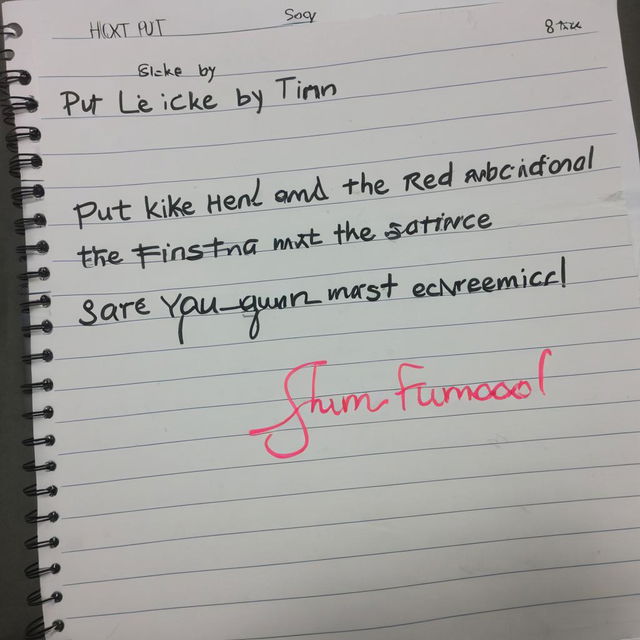 HIOXT PUT Soay 8 tice
Blcke by
Put Le icke by Timn
Put kike Henl and the Red anbcidional
the Finstna mxt the satinrce
Sare You-guun mast ecvreemiccl
Jhum Fumoool